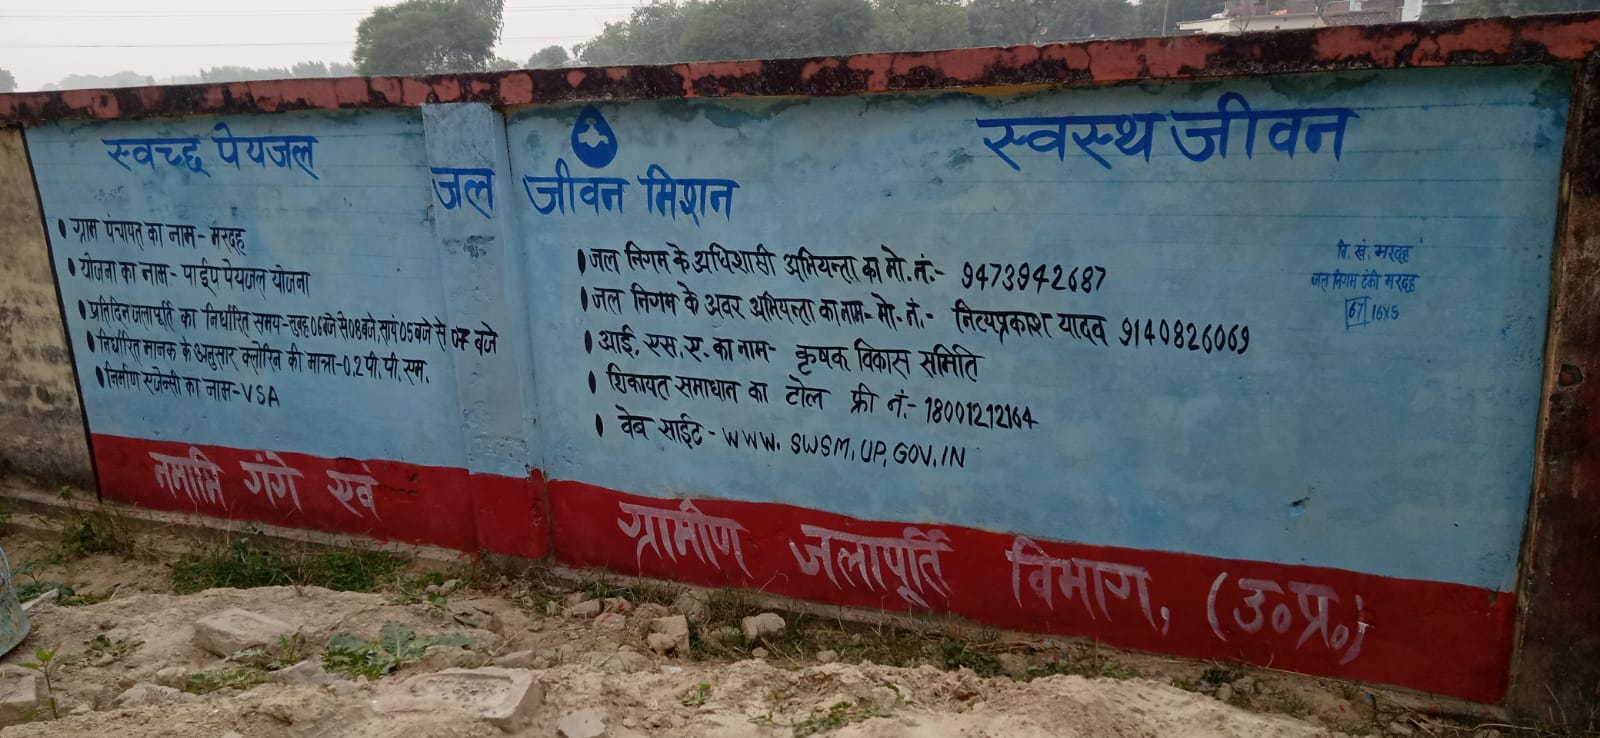 स्वच्छ पेयजल
स्वस्थ जीवन
जल जीवन मिशन
• ग्राम पंचायत का नाम- मरदह
• योजना का नाम- पाईप पेयजल योजना
• प्रतिदिन जलापूर्ति का निर्धारित समय-सुबह 06बजे से 08बजे, सायं 05बजे से 07 बजे
• निर्धारित मानक के अनुसार क्लोरिन की मात्रा-0.2 पी. पी. एम.
• निर्माण एजेन्सी का नाम-VSA
• जल निगम के अधिशासी अभियन्ता का मो. नं.- 9473942687
• जल निगम के अवर अभियन्ता का नाम- मो. नं.- नित्यप्रकाश यादव 9140826069
• आई. एस. ए. का नाम- कृषक विकास समिति
• शिकायत समाधान का टोल फ्री नं.- 18001212164
• वेब साईट - WWW. SWSM. UP. GOV. IN
वि. खं. मरदह
जल निगम टंकी मरदह
67 16x5
नमामि गंगे एवं ग्रामीण जलापूर्ति विभाग, (उ०प्र०)